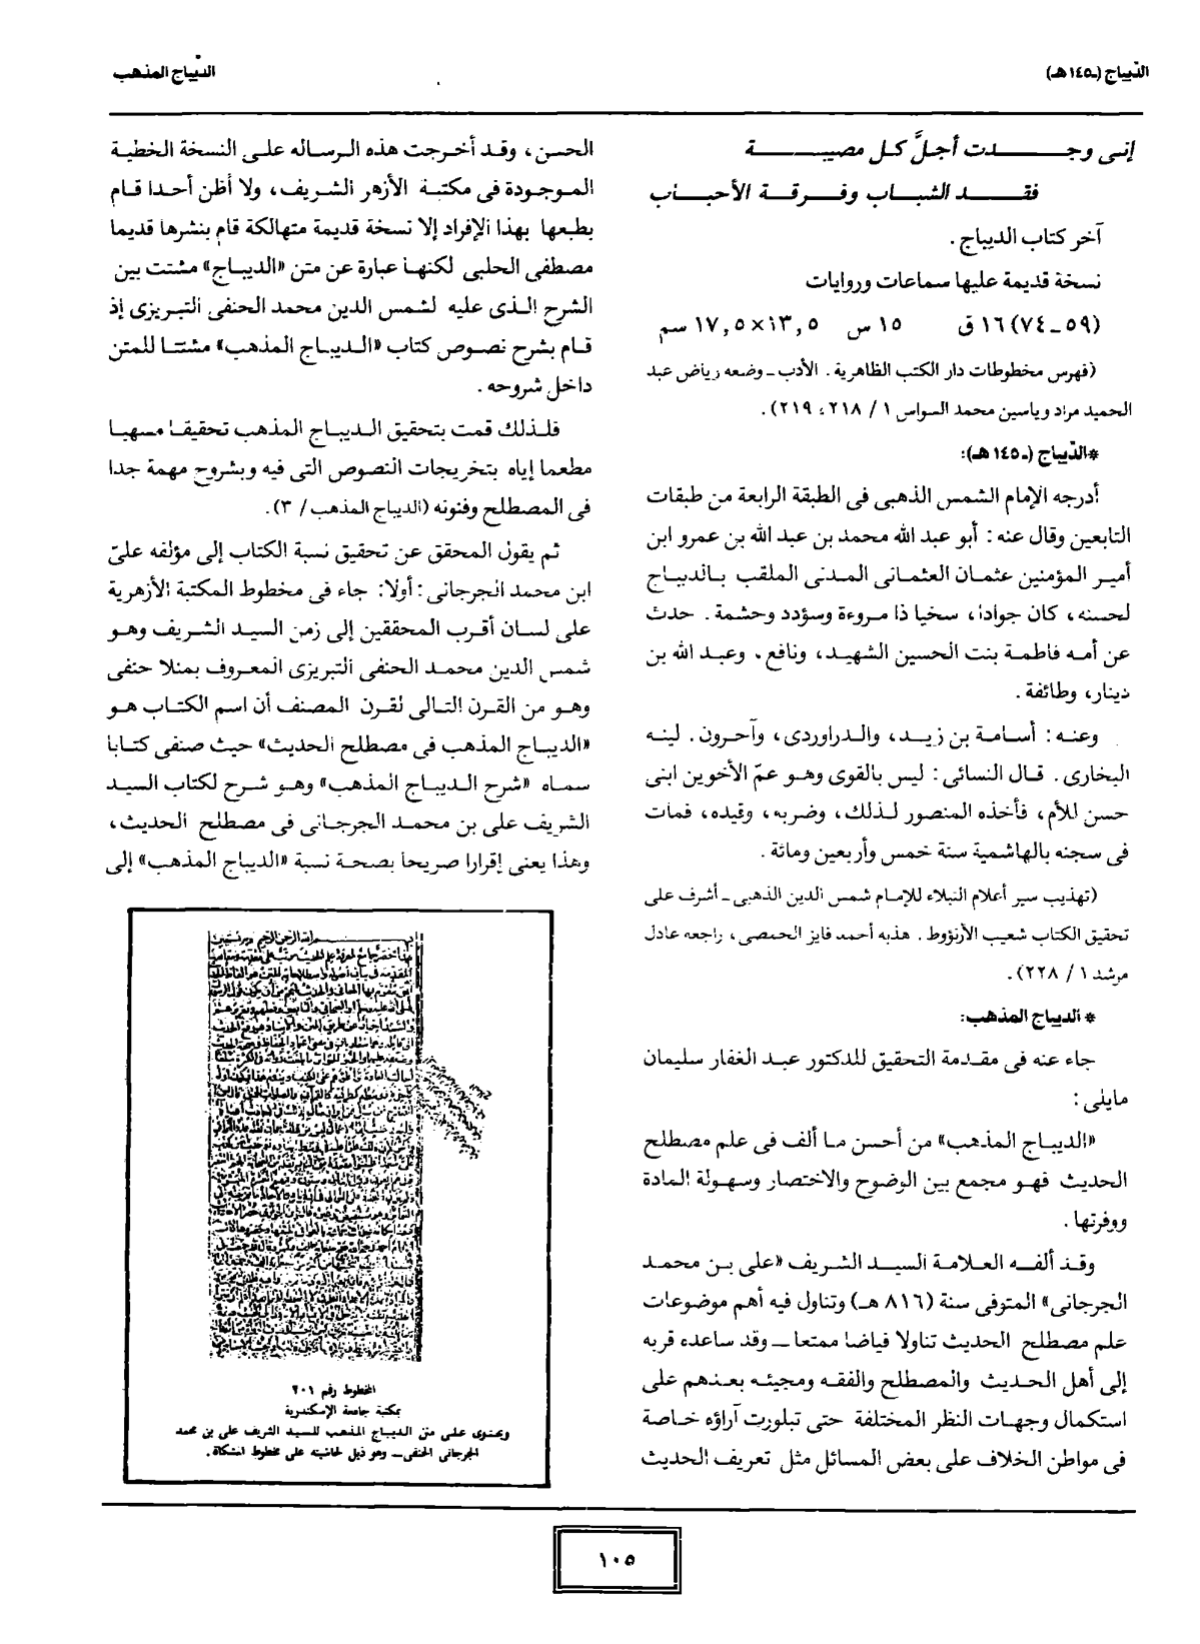 الديباج (ـ١٤٥هـ)
الديباج المذهب
إنى وجـــــــدت أجلَّ كـل مصيبـــــــة
فقـــــد الشبـاب وفـــرقـــة الأحبـــاب
آخر كتاب الديباج .
نسخة قديمة عليها سماعات وروايات
(٥٩ ـ ٧٤) ١٦ ق ١٥ س ١٣,٥×١٧,٥ سم
(فهرس مخطوطات دار الكتب الظاهرية . الأدب ـ وضعه رياض عبد
الحميد مراد وياسين محمد السواس ١ / ٢١٨ ، ٢١٩) .
*الدّيباج (ـ١٤٥ هـ):
أدرجه الإمام الشمس الذهبى فى الطبقة الرابعة من طبقات
التابعين وقال عنه : أبو عبد الله محمد بن عبد الله بن عمرو ابن
أميـر المؤمنين عثمـان العثمـانى المـدنى الملقب بـالديبـاج
لحسنه ، كان جوادا ، سخيا ذا مـروءة وسؤدد وحشمة . حدث
عن أمـه فاطمـة بنت الحسين الشهيـد ، ونافع . وعبـد الله بن
دينار ، وطائفة .
وعنـه : أسـامـة بن زيـد ، والـدراوردى ، وآخـرون . لينـه
البخارى . قـال النسائى : ليس بالقوى وهـو عمّ الأخوين ابنى
حسن للأم ، فأخذه المنصور لـذلك ، وضربـه ، وقيده ، فمات
فى سجنه بالهاشمية سنة خمس وأربعين ومائة .
(تهذيب سير أعلام النبلاء للإمـام شمس الدين الذهبى ـ أشرف على
تحقيق الكتاب شعيب الأرنؤوط . هذبه أحمد فايز الحمصى ، راجعه عادل
مرشد ١ / ٢٢٨) .
* الديباج المذهب:
جاء عنه فى مقـدمة التحقيق للدكتور عبـد الغفار سليمان
مايلى :
«الديباج المذهب» من أحسن مـا ألف فى علم مصطلح
الحديث فهـو مجمع بين الوضوح والاختصار وسهـولة المادة
ووفرتها .
وقـد ألفـه العـلامـة السيـد الشـريف «على بـن محمـد
الجرجانى» المتوفى سنة (٨١٦ هـ) وتناول فيه أهم موضوعات
علم مصطلح الحديث تناولا فياضا ممتعا ــ وقد ساعده قربه
إلى أهل الحـديث والمصطلح والفقـه ومجيئـه بعـدهم على
استكمال وجهـات النظر المختلفة حتى تبلورت آراؤه خـاصة
فى مواطن الخلاف على بعض المسائل مثل تعريف الحديث
الحسن ، وقـد أخـرجت هذه الـرسـاله علـى النسخة الخطيـة
المـوجودة فى مكتبـة الأزهر الشـريف ، ولا أظن أحـدا قـام
بطبعها بهذا الإفراد إلا نسخة قديمة متهالكة قام بنشرها قديما
مصطفى الحلبى لكنهـا عبارة عن متن «الديبـاج» مشتت بين
الشرح الـذى عليه لشمس الدين محمد الحنفى التبـريزى إذ
قـام بشرح نصـوص كتاب «الـديبـاج المذهب» مشتتـا للمتن
داخل شروحه .
فلـذلك قمت بتحقيق الـديبـاج المذهب تحقيقـا مسهبـا
مطعما إياه بتخريجات النصوص التى فيه وبشروح مهمة جدا
فى المصطلح وفنونه (الديباج المذهب / ٣) .
ثم يقول المحقق عن تحقيق نسبة الكتاب إلى مؤلفه علىّ
ابن محمد الجرجانى : أولا: جاء فى مخطوط المكتبة الأزهرية
على لسـان أقـرب المحققين إلى زمن السيـد الشـريف وهـو
شمس الدين محمـد الحنفى التبريزى المعـروف بمنلا حنفى
وهـو من القـرن التـالى لقـرن المصنف أن اسم الكتـاب هـو
«الديبـاج المذهب فى مصطلح الحديث» حيث صنفى كتـابا
سمـاه «شرح الـديبـاج المذهب» وهـو شـرح لكتاب السيـد
الشريف على بن محمـد الجرجـانى فى مصطلح الحديث ،
وهذا يعنى إقرارا صريحا بصحـة نسبة «الديباج المذهب» إلى
المخطوط رقم ٢٠١
بمكتبة جامعة الإسكندرية
ويحتوى على متن الديباج المذهب للسيد الشريف على بن محمد
الجرجانى الحنفى ــ وهو ذيل لحاشيته على مخطوط المشكاة .
١٠٥